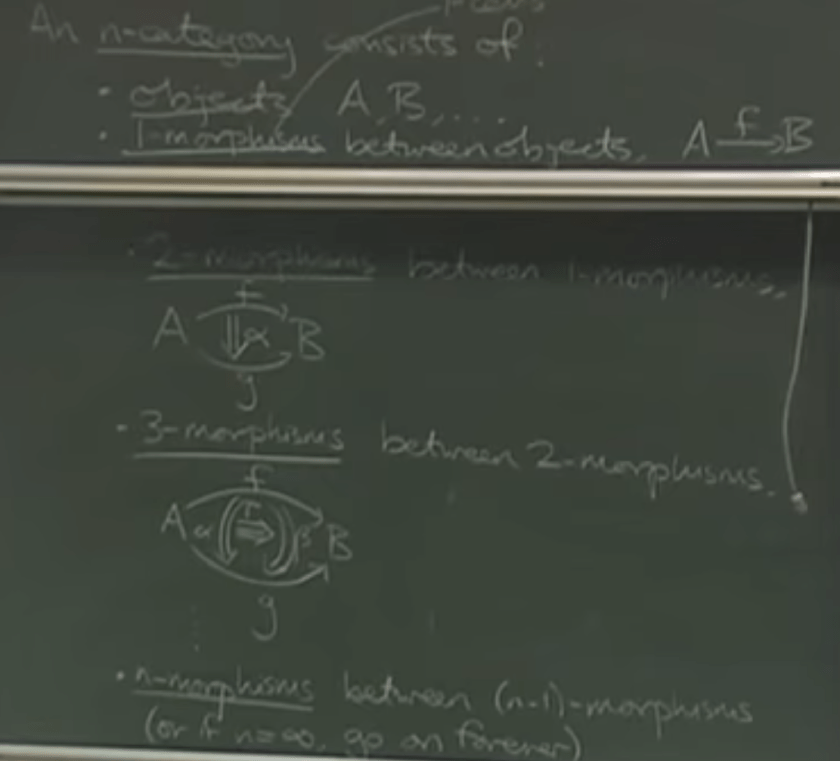 An n-category consists of:
• objects A, B, ....
• 1-morphisms between objects, A f→ B
• 2-morphisms between 1-morphisms,
f
A ⇓α B
g
• 3-morphisms between 2-morphisms.
f
A α Γ ⇛ β B
g
⋮
• n-morphisms between (n-1)-morphisms
(or if n=∞, go on forever)